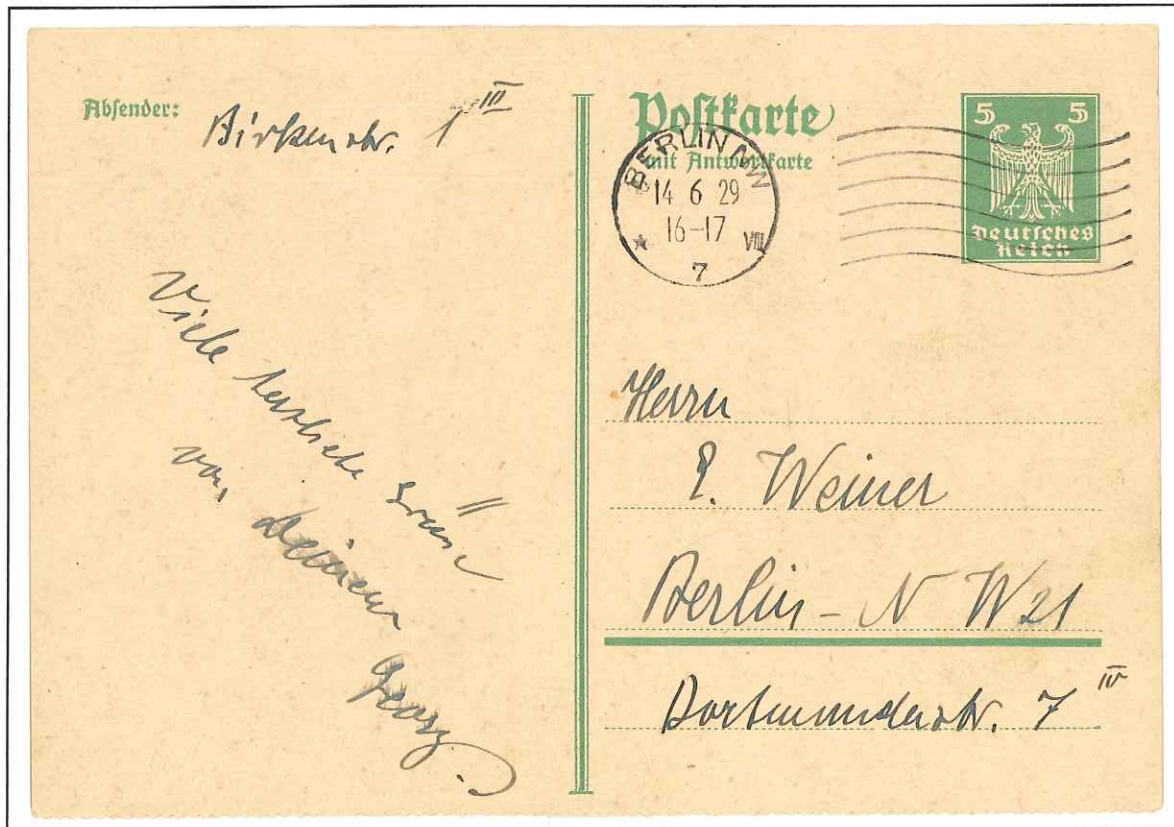 Absender:
Birkenstr. 1 III
Viele herzliche Grüße
von Deinem
Georg.
Postkarte
mit Antwortkarte
BERLIN NW
14 6 29
16-17 VIII
7
5 5
Deutsches
Reich
Herrn
E. Weiner
Berlin - N W 21
Dortmunderstr. 7 IV